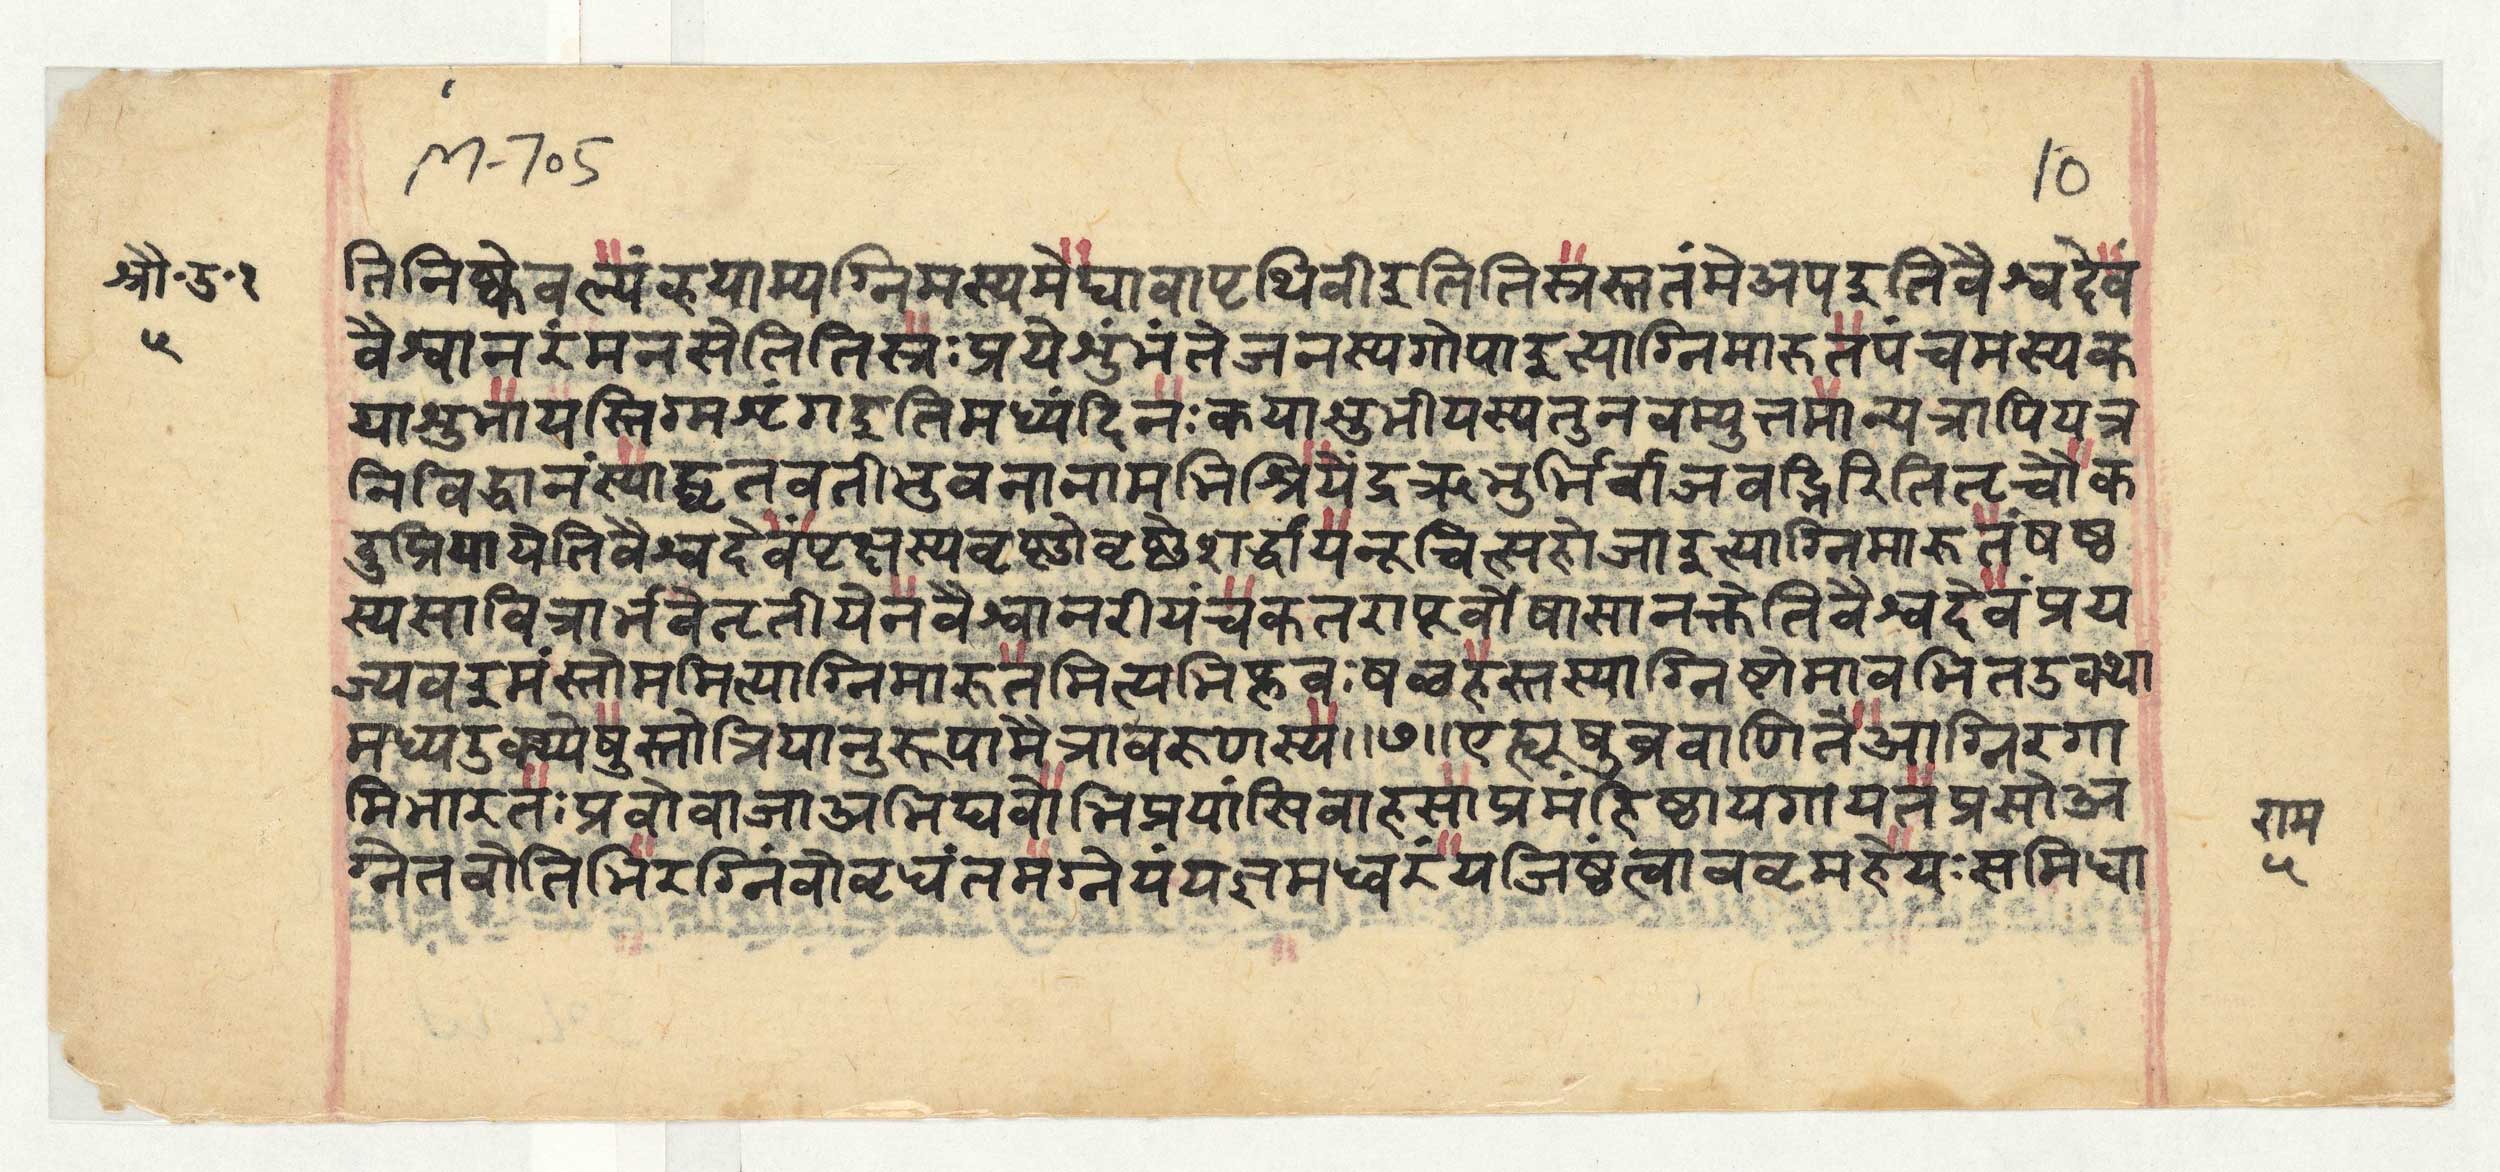 M-705
10
श्रौ॰उ॰१
५
तिनिष्केवल्यंह्वयाम्यग्निमस्यमेद्यावापृथिवीइतितिस्त्रस्ततंमेअपइतिवैश्वदेवं
वैश्वानरंमनसेतितिस्त्रःप्रयेशुंभंतेजनस्यगोपाइत्याग्निमारुतंपंचमस्यक
याशुभायस्तिग्मशृंगइतिमध्यंदिनःकयाशुभीयस्यतुनवम्युत्तमान्यत्रापियत्र
निविद्धानंस्याद्घृतवतीभुवनानामभिश्रियेंद्रऋभुर्भिर्वाजवद्भिरितितृचौक
दुप्रियायेतिवैश्वदेवंपृक्षस्यवृष्णोवृष्णेशर्द्धायनूचित्सहोजाइत्याग्निमारुतंषष्ठ
स्यसावित्रार्भवेतृतीयेनवैश्वानरीयंचकतरापूर्वोषासानक्तेतिवैश्वदेवंप्रय
ज्यवइमंस्तोममित्याग्निमारुतमित्यभिप्लवःषळहस्तस्याग्निष्टोमावभितउक्था
मध्यउक्थ्येषुस्तोत्रियानुरूपामैत्रावरुणस्य॥७॥एह्यूषुब्रवाणितेआग्निरगा
मिभारतःप्रवोवाजाअभिद्यवोभिप्रयांसिवाहसाप्रमंहिष्ठायगायतप्रसोअ
ग्नेतवोतिभिरग्निंवोवृधंतमग्नेयंयज्ञमध्वरंयजिष्ठंत्वाववृमहेयःसमिधा
राम
५